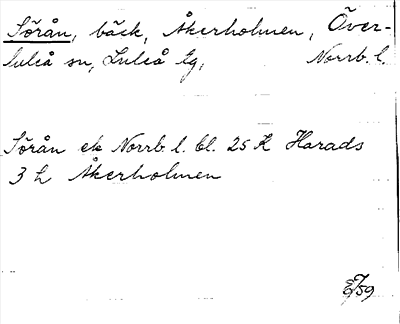 Sörån, bäck, Åkerholmen, Över-
luleå sn, Luleå tg, Norrb. l.
Sörån ek Norrb. l. bl. 25 K Harads
3 h Åkerholmen